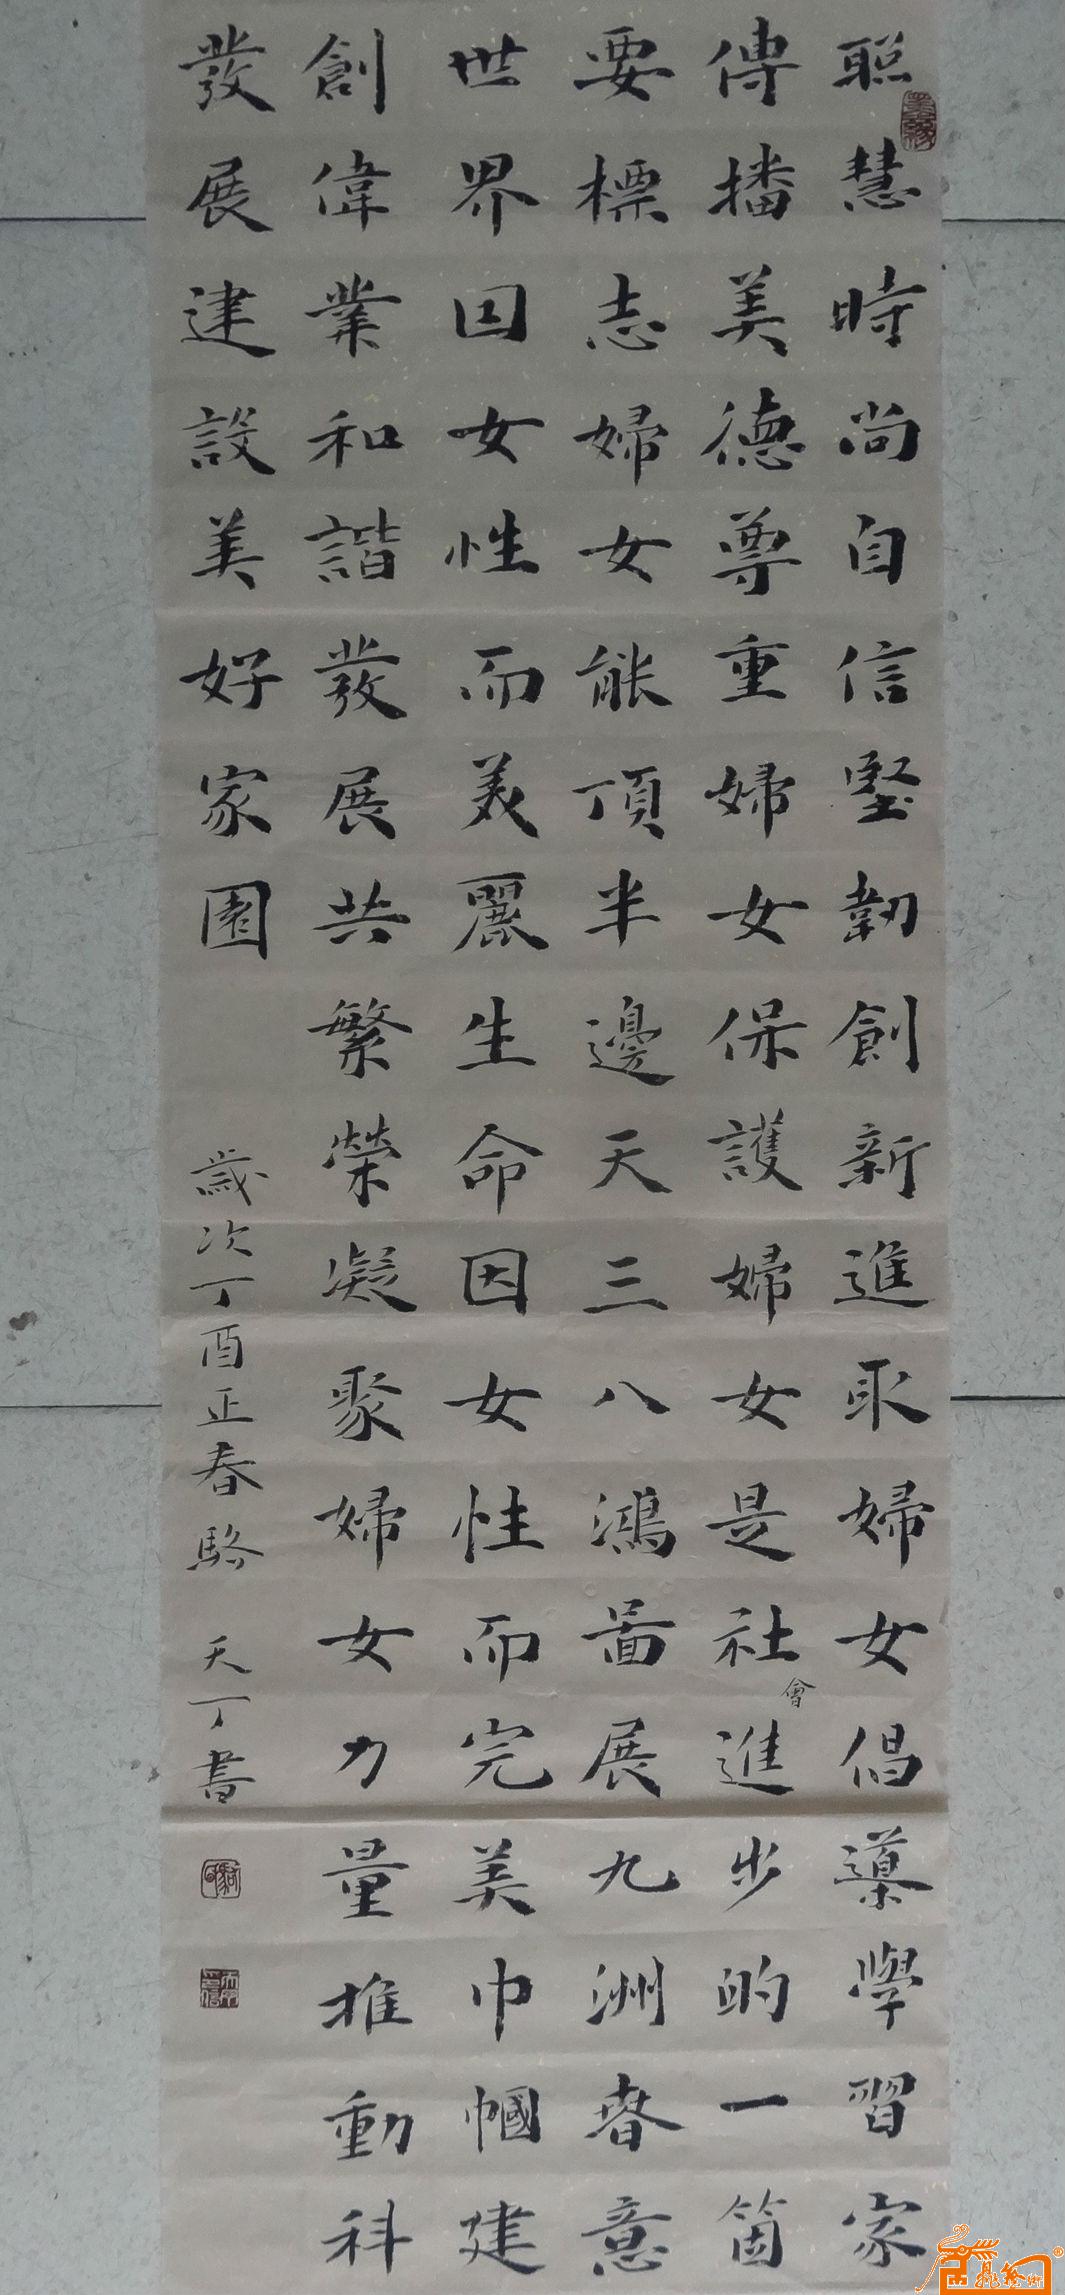 聪慧時尚自信堅韌創新進取婦女倡導學習家
傳播美德尊重婦女保護婦女是社會進步的一箇
要標志婦女能頂半邊天三八鴻啚展九洲春意
世界因女性而美麗生命因女性而完美巾幗建
創偉業和諧發展共繁榮凝聚婦女力量推動科
發展建設美好家園
歲次丁酉正春駱天丁書
墨緣